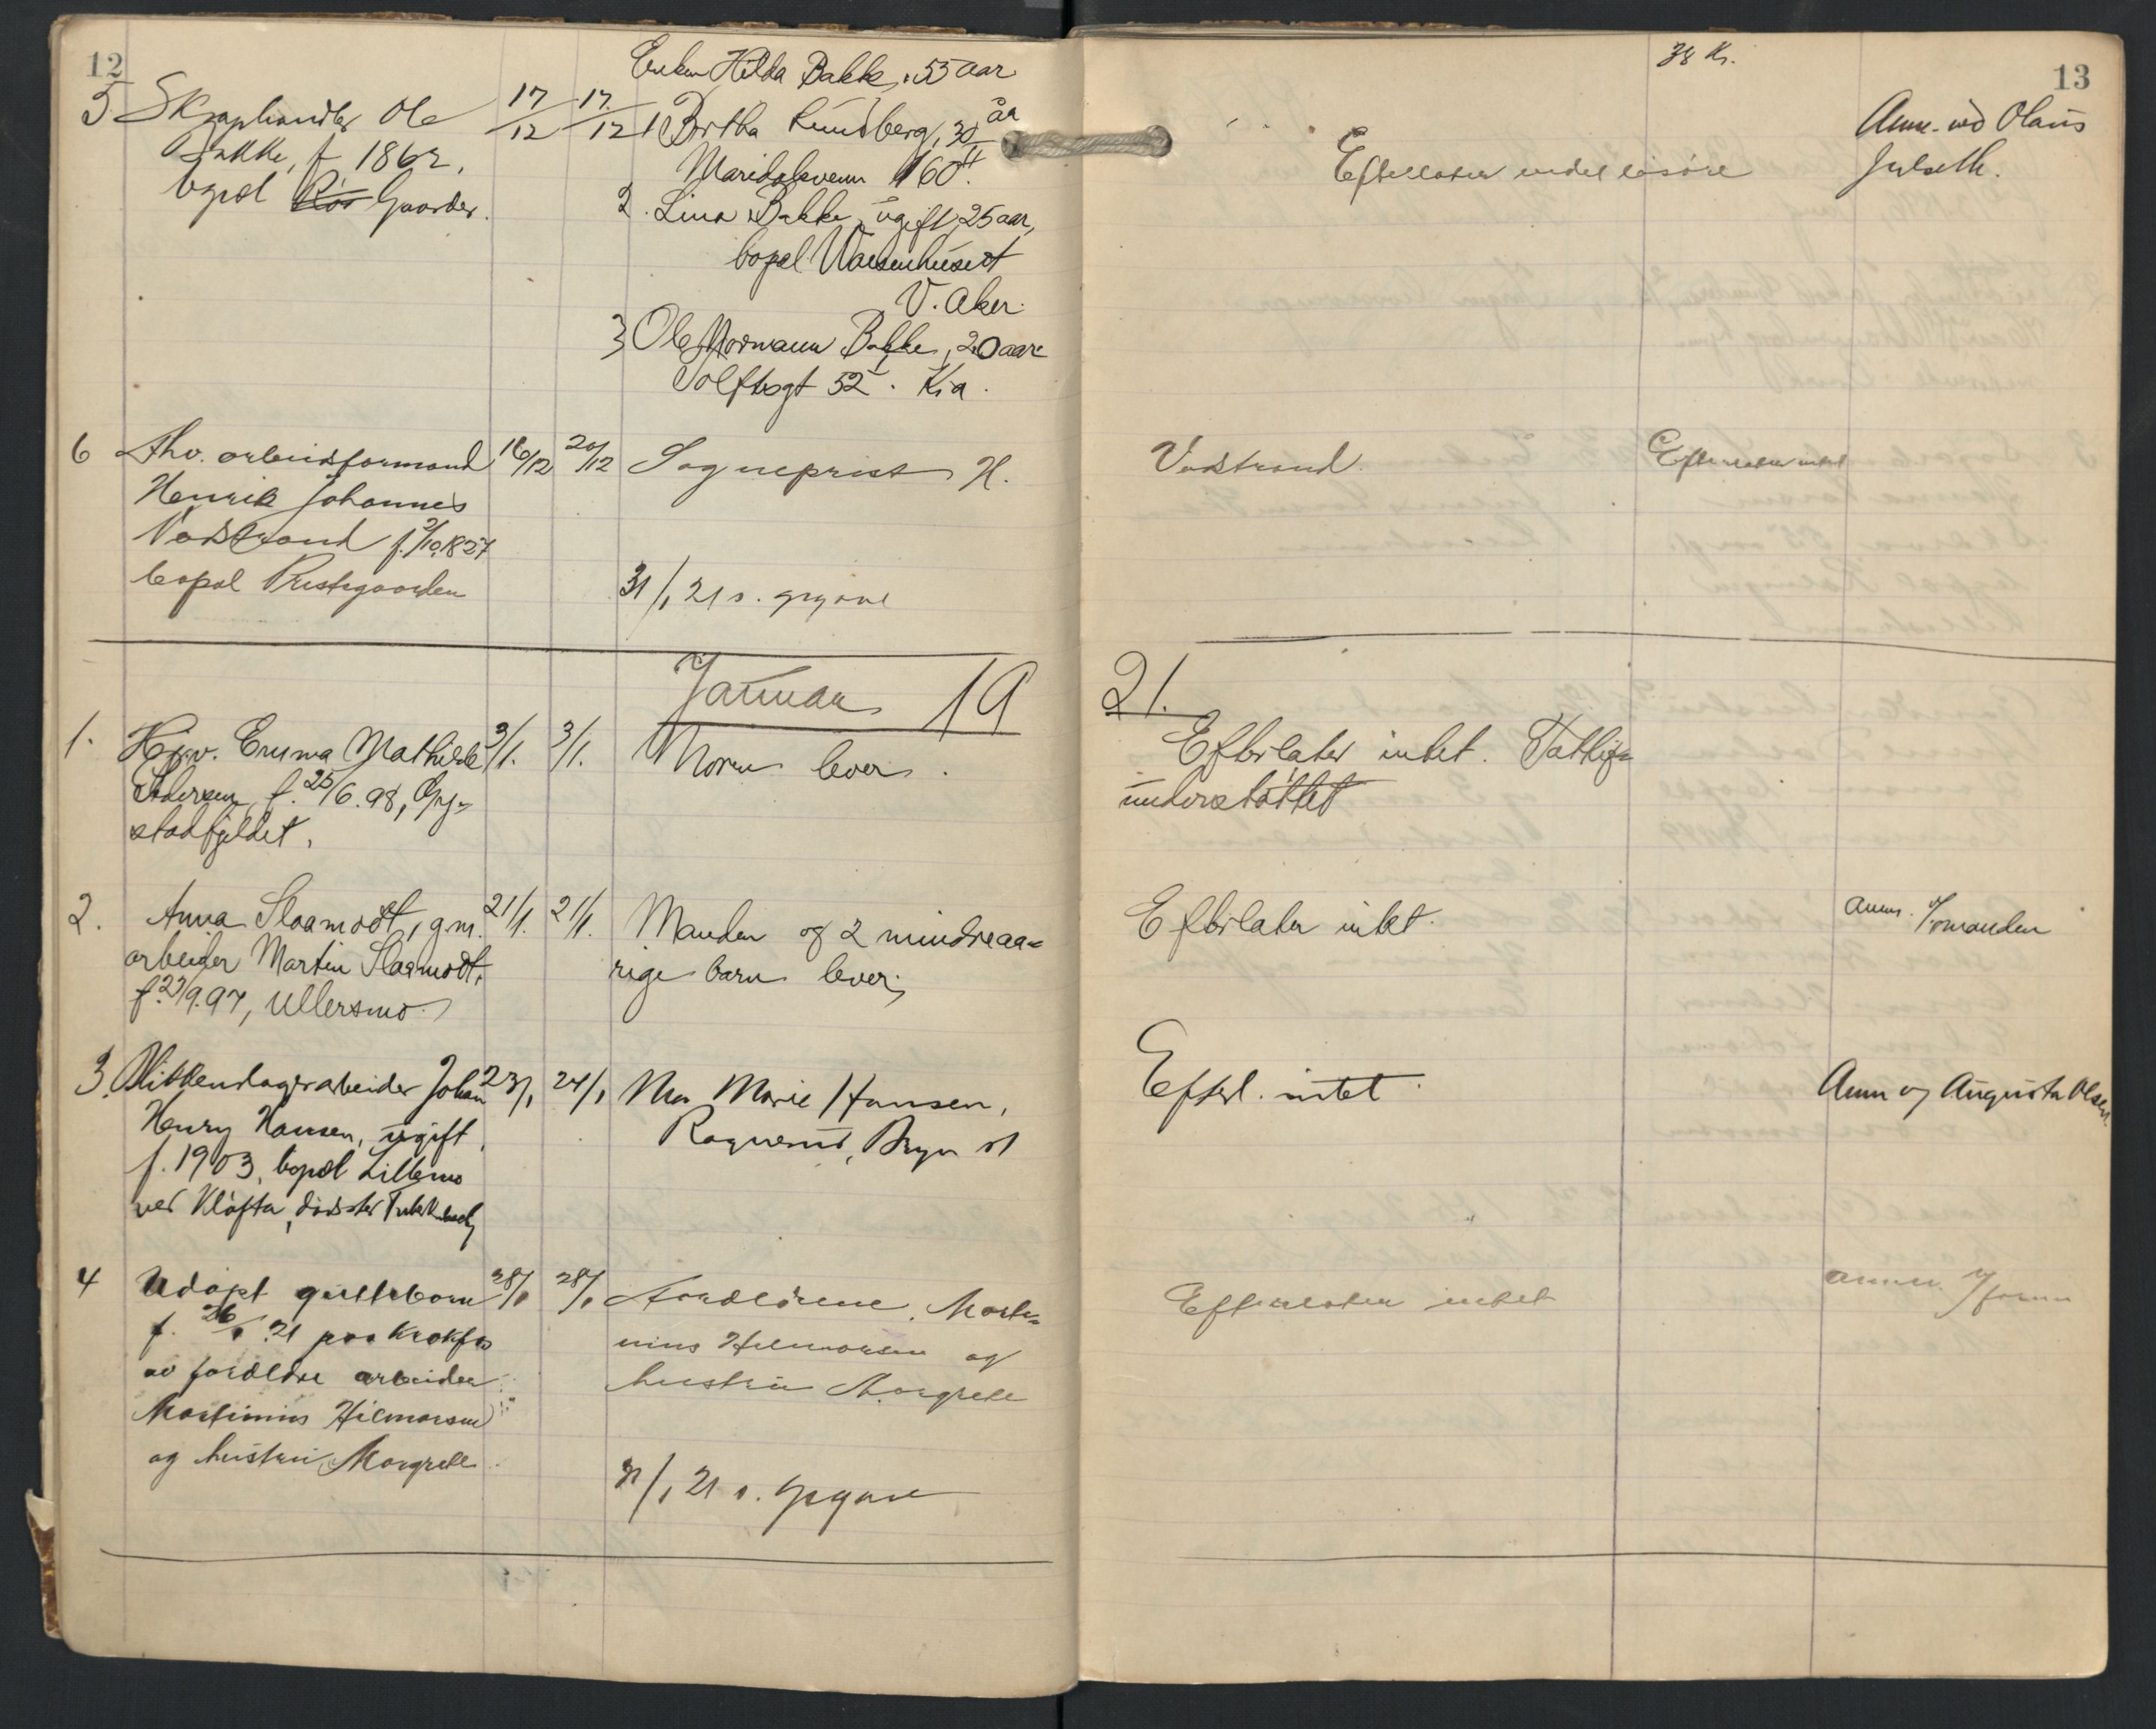 12
Enken Hilda Bakke, 55 aar
5 Skraphandler Ole 17/12 17/12 1 Bertha Lundberg, 30 år
Bakke, f. 1862, Maridalsveien 160 II.
bopæl Gaarder. 2. Lina Bakke, ugift, 25 aar,
bopæl Waisenhuset
V. Aker.
3 Ole Normann Bakke, 20 aar
Tolfbogt 52 I. Kra.
6 Fhv. arbeidsformand 16/12 20/12 Sogneprest H.
Henrik Johannes
Vadstrand f. 2/10.1827
bopæl Prestegaarden
31/1 21 s. grgaard
Januar 19
1. Hjv. Emma Mathilde 3/1. 3/1. Moren lever.
Pedersen, f. 25/6.98,
stadfjeldet.
2. Anna Slaamodt, g.m. 21/1. 21/1. Manden og 2 mindreaa=
arbeider Martin Slaamodt, rige barn lever,
f. 27/9.97, Ullersmo.
3. Slikkendagsarbeider Johan 23/1 24/1 Mor Marie Hansen,
Henry Hansen, ugift, Bryn st
f. 1903, bopæl Lillemo
ved Kløfta, dødsster
4 Udøpt guttebarn 28/1 28/1 Forældrene, Marti=
f. 26/1 21 paa Krokfos nius Hilmarsen og
av forældre arbeider hustru Margrete
Martinius Hilmarsen
og hustru Margrete
31/1 21 s.
13
38 Kr.
Anm. ved Olaus
Efterlater endel løsøre Julseth.
Vadstrand. Efterlater intet
21.
Efterlater intet. Fattig=
understøttet
Efterlater intet. Anm. v/ manden
Efterl. intet. Anm av Augusta Olsen.
Efterlater intet anm. v/